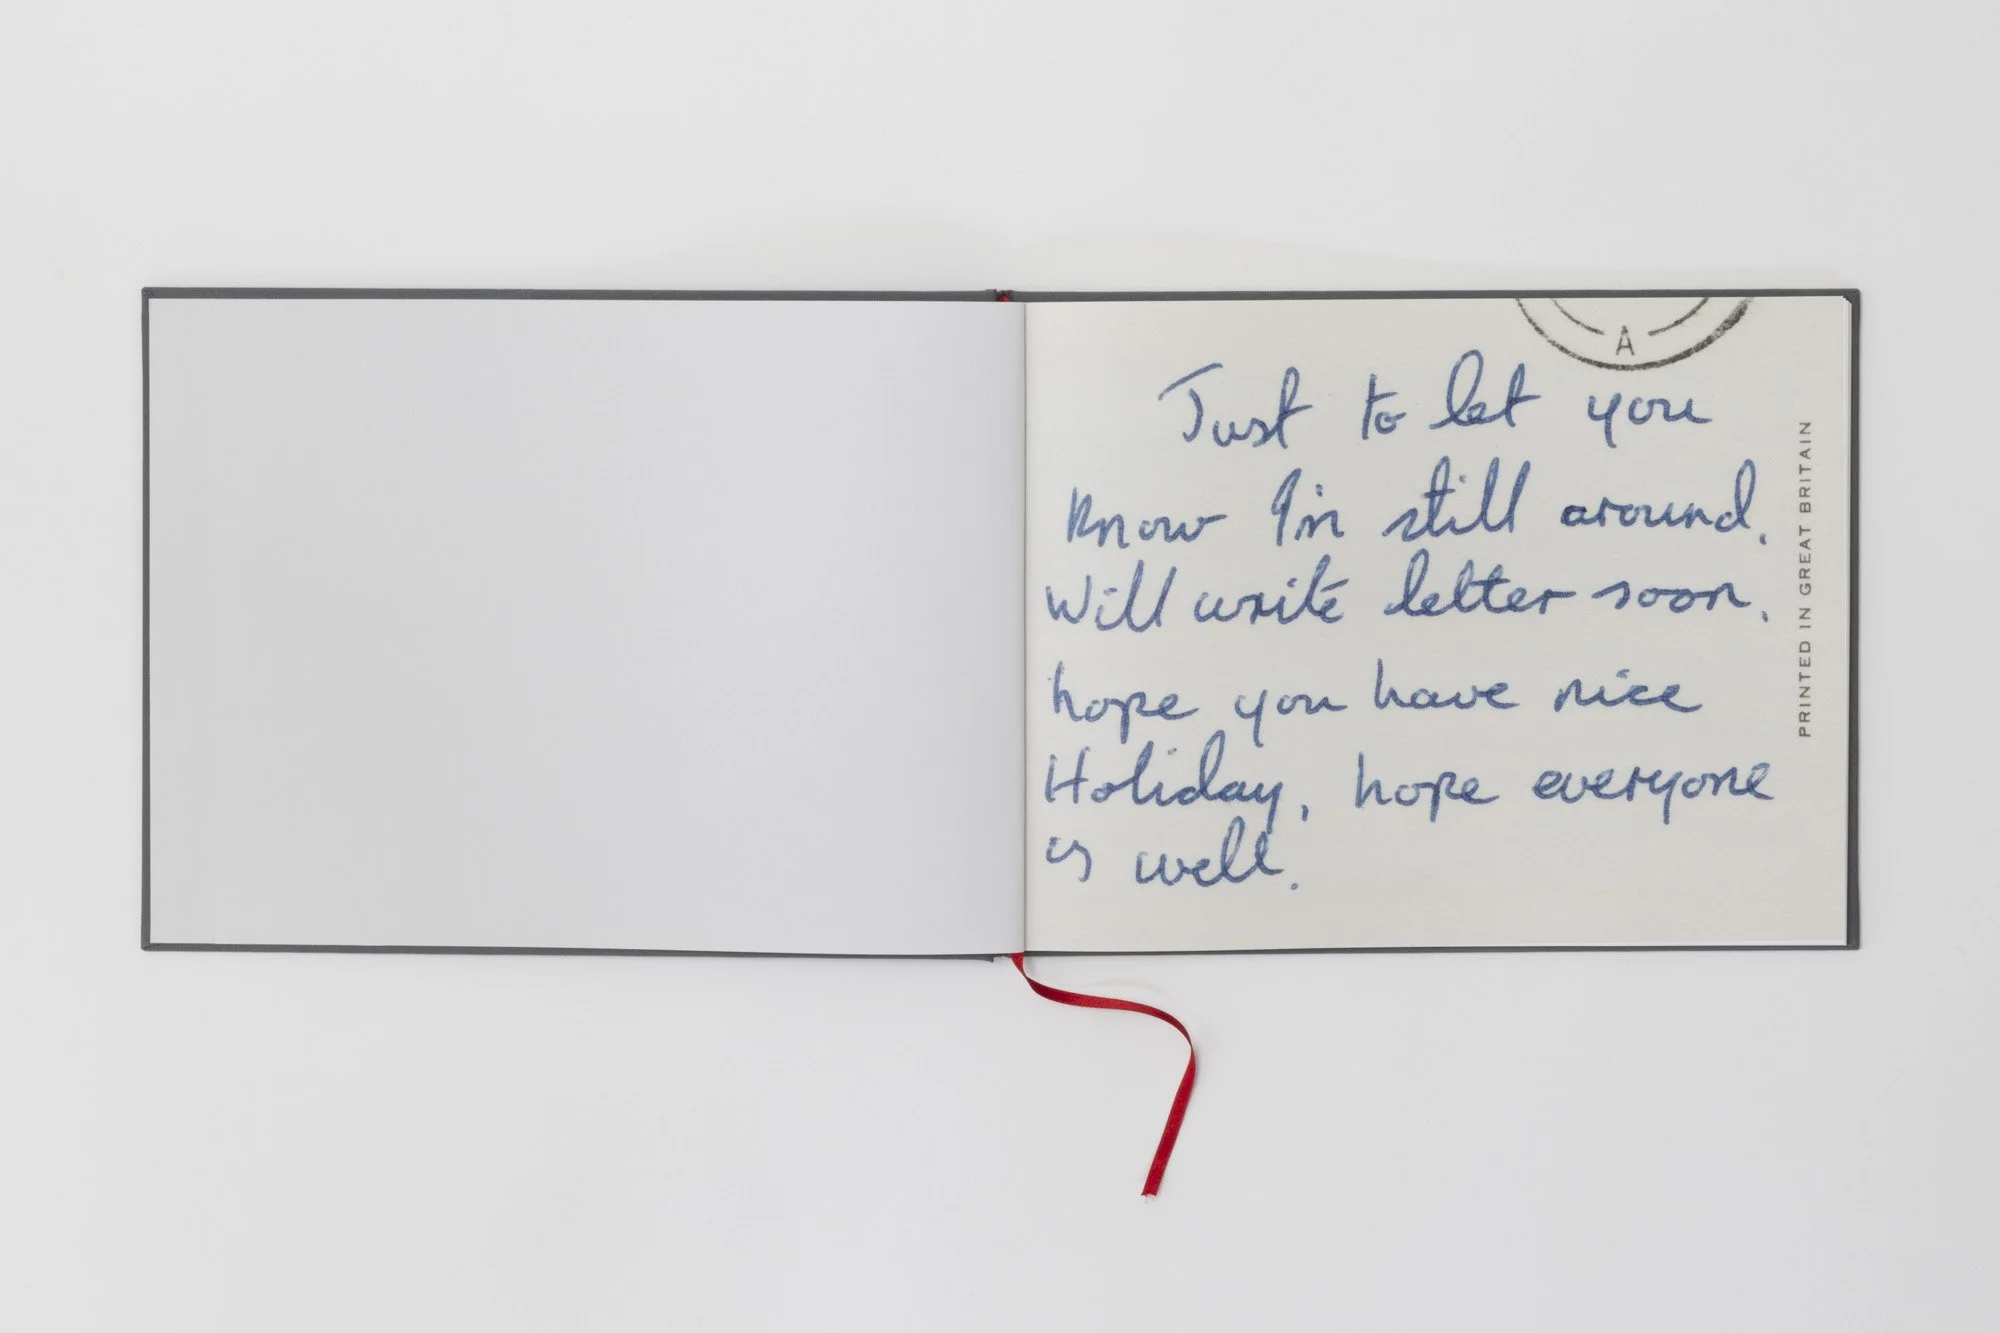 A
Just to let you
Know I'm still around.
Will write letter soon.
hope you have nice
Holiday, hope everyone
is well.
PRINTED IN GREAT BRITAIN